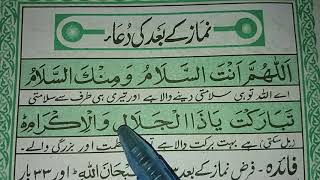 نماز کے بعد کی دُعاء
اَللّٰهُمَّ اَنْتَ السَّلَامُ وَمِنْكَ السَّلَامُ
اے اللہ تو ہی سلامتی دینے والا ہے اور تیری ہی طرف سے سلامتی
تَبَارَكْتَ يَا ذَا الْجَلَالِ وَالْاِكْرَامِ
(مل سکتی) ہے بہت برکت والا ہے عظمت اور بزرگی والے۔
فائدہ: فرض نماز کے بعد سبحان اللہ ۳۳ بار